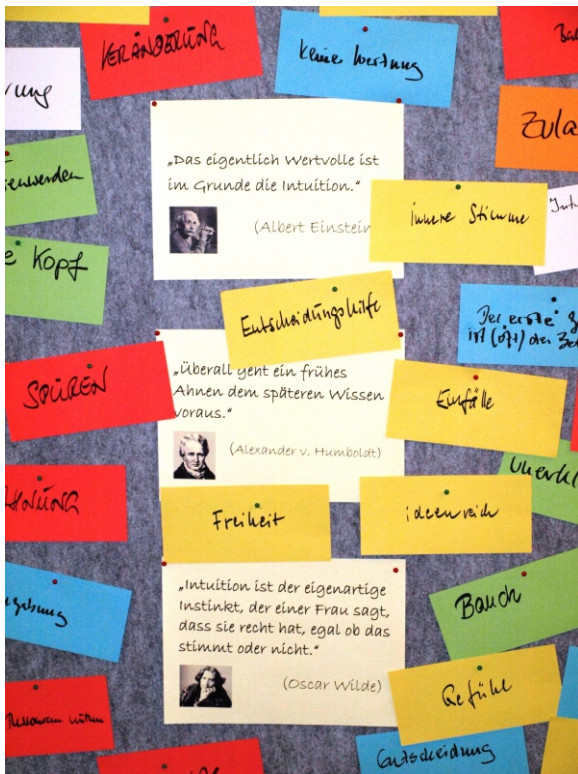 VERÄNDERUNG
keine Wertung
Zula
„Das eigentlich Wertvolle ist
im Grunde die Intuition.“
(Albert Einstein
innere Stimme
Kopf
Entscheidungshilfe
Der erste
ist (oft) der
„Überall geht ein frühes
Ahnen dem späteren Wissen
voraus.“
(Alexander v. Humboldt)
SPÜREN
Einfälle
Freiheit
ideenreich
„Intuition ist der eigenartige
Instinkt, der einer Frau sagt,
dass sie recht hat, egal ob das
stimmt oder nicht.“
(Oscar Wilde)
Bauch
Gefühl
Entscheidung